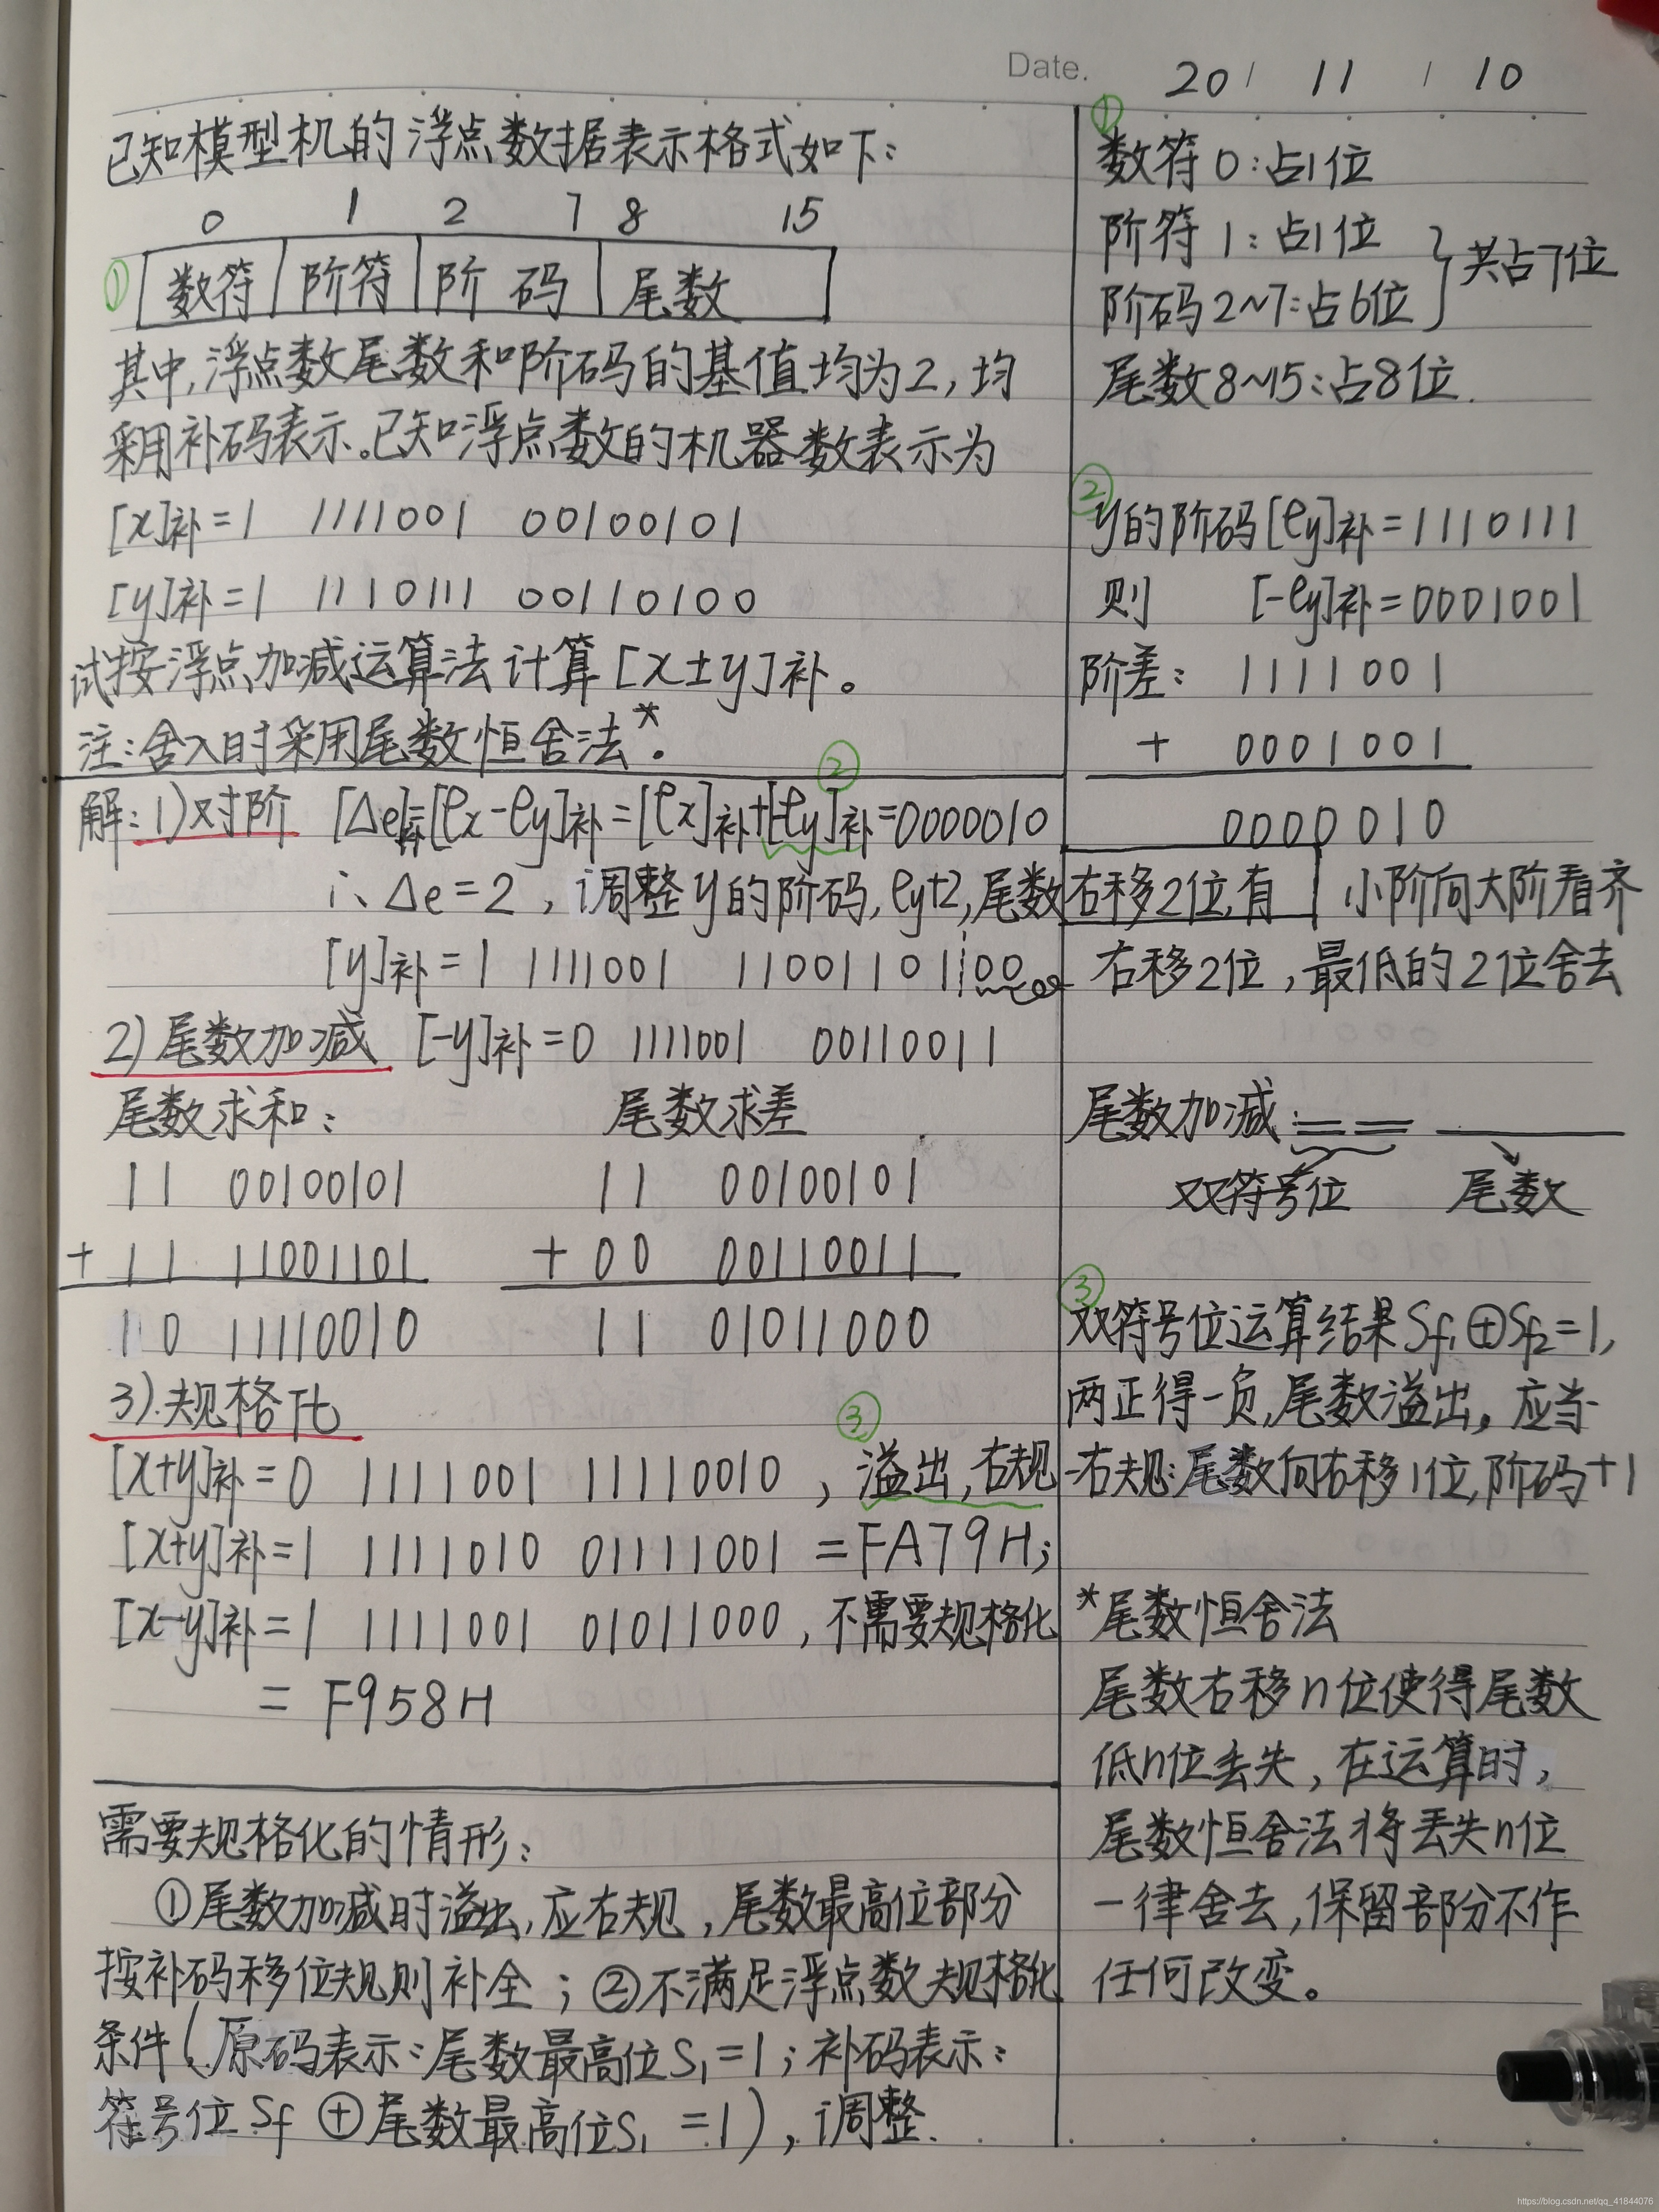 Date. 20 / 11 / 10
已知模型机的浮点数据表示格式如下:
0 1 2 7 8 15
① 数符 阶符 阶码 尾数
其中,浮点数尾数和阶码的基值均为2,均
采用补码表示。已知浮点数的机器数表示为
[x]补=1 1111001 00100101
[y]补=1 1110111 00110100
试按浮点加减运算法计算[x±y]补。
注:舍入时采用尾数恒舍法*。
解:1)对阶 [Δe]补=[ex-ey]补=[ex]补+[-ey]补=0000010
②
∴Δe=2,调整y的阶码,ey+2,尾数右移2位,有
[y]补=1 1111001 11001101 00
2)尾数加减 [-y]补=0 1111001 00110011
尾数求和: 尾数求差
11 00100101 11 00100101
+ 11 11001101 + 00 00110011
10 11110010 11 01011000
3).规格化
③
[x+y]补=0 1111001 11110010,溢出,右规
[x+y]补=1 1111010 01111001 =FA79H;
[x-y]补=1 1111001 01011000,不需要规格化
= F958H
需要规格化的情形:
①尾数加减时溢出,应右规,尾数最高位部分
按补码移位规则补全;②不满足浮点数规格化
条件(原码表示:尾数最高位S₁=1;补码表示:
符号位Sf⊕尾数最高位S₁=1),调整.
①
数符0:占1位
阶符1:占1位
阶码2~7:占6位
共占7位
尾数8~15:占8位.
②
y的阶码[ey]补=1110111
则 [-ey]补=0001001
阶差: 1111001
+ 0001001
0000010
小阶向大阶看齐
右移2位,最低的2位舍去
尾数加减:
双符号位 尾数
③
双符号位运算结果Sf₁⊕Sf₂=1,
两正得一负,尾数溢出。应当
右规:尾数向右移1位,阶码+1
*尾数恒舍法
尾数右移n位使得尾数
低n位丢失,在运算时,
尾数恒舍法将丢失n位
一律舍去,保留部分不作
任何改变。
https://blog.csdn.net/qq_41844076